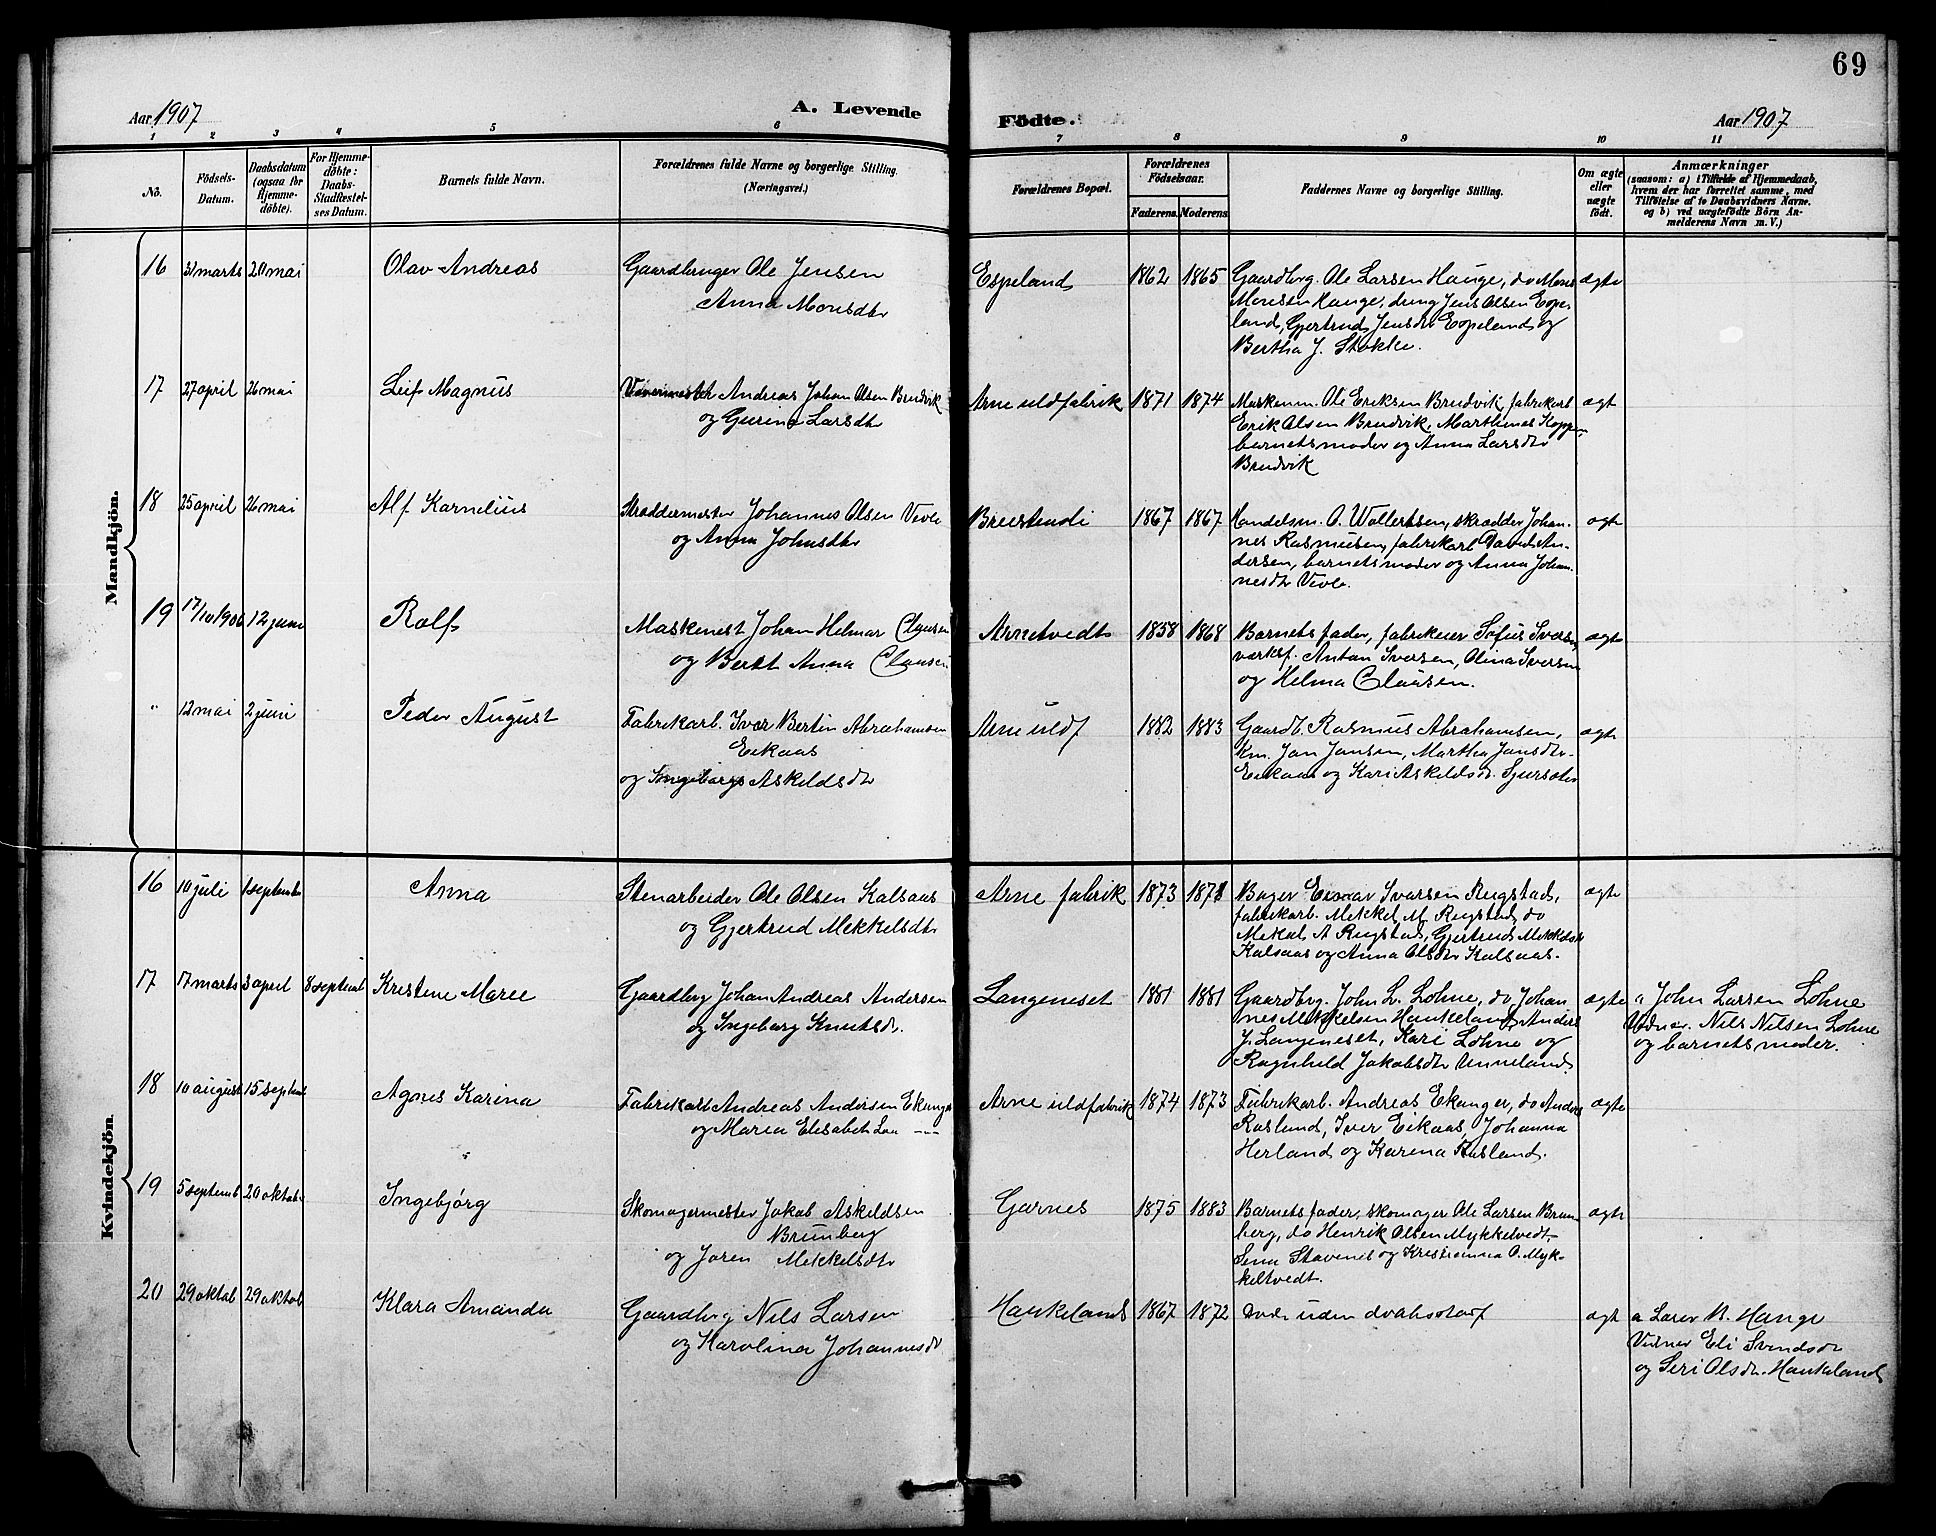 69
Aar 1907
A. Levende
Födte.
Aar 1907
1 2 3 4 5 6 7 8 9 10 11
No.
Födsels-
Datum.
Daabsdatum
(ogsaa for
Hjemme-
döbte).
For Hjemme-
döbte:
Daabs-
Stadfestel-
ses Datum.
Barnets fulde Navn.
Forældrenes fulde Navne og borgerlige Stilling.
(Næringsvei.)
Forældrenes Bopæl.
Forældrenes
Födselsaar.
Faderens. Moderens.
Faddernes Navne og borgerlige Stilling.
Om ægte
eller
uægte
födt.
Anmærkninger
(saasom: a) i Tilfælde af Hjemmedaab,
hvem der har forrettet samme, med
Tilföielse af to Daabsvidners Navne.
og b) ved uægtefödte Börn An-
melderens Navn m. V.)
Mandkjön.
16 31 marts 20 mai
Olav Andreas
Gaardbruger Ole Jensen
Anna Monsdtr
Espeland
1862 1865
Gaardbrg. Ole Larsen Hauge, do Mons
Monsen Hauge, dreng Jens Olsen Espe-
land, Gjertrud Jensdtr Espeland og
Bertha J. Stokke.
ægte
17 27 april 26 mai
Leif Magnus
Andreas Johan Olsen Brudvik
og Gurine Larsdtr
Arne uldfabrik
1871 1874
Maskinm. Ole Eriksen Brudvik, fabrikarb
Erik Olsen Brudvik, Marthines Koppen,
barnets moder og Anna Larsdtr
Brudvik
ægt
18 25 april 26 mai
Alf Kornelius
Skræddermester Johannes Olsen Vevle
og Anna Johnsdtr
1867 1867
Handelsm. O. Wollertsen, skrædder Johan-
nes Rasmusen, fabrikarb David An-
dersen, barnets moder og Anna Johan-
nesdtr Vevle.
ægte
19 17/10 1906 12 juni
Rolf
Maskinest Johan Helmar Clausen
og Berth Anna Clausen
Arnetvedt
1858 1868
Barnets fader, fabrikeier Sofus Iversen,
værksf. Anton Iversen, Olina Iversen
og Helma Claüsen.
ægte
" 12 mai 2 juni
Peder August
Fabrikarb. Ivar Bertin Abrahamsen
Eikaas
og Ingeborg Askildsdtr
Arne uldf
1882 1883
Gaardb. Rasmus Abrahamsen,
Km. Jan Jansen, Martha Jansdtr
Eikaas og Kari Askildsdr.
ægte
Kvindekjön.
16 10 juli 1 september
Anna
Stenarbeider Ole Olsen Kalsaas
og Gjertrud Mekkelsdtr
Arne fabrik
1873 1871
Bager Einar Ivarsen Rugstad,
fabrikarb. Mekkel M. Rugstad, do
Mekal A Rugstad, Gjertrud Mekkelsdtr
Kalsaas og Anna Olsdtr Kalsaas.
ægte
17 17 marts 3 april 8 septemb
Kristine Marie
Gaardbrg Johan Andreas Andersen
og Ingeborg Knutsdr.
Langeneset
1881 1881
Gaardbrg. John L. Lohne, do Johan
nes Mekkelsen Haukeland, Anders
J. Langeneset, Kari Lohne og
Ragnhild Jakobsdtr Unneland
ægte
a John Larsen Lohne
Vidner. Nils Nilsen Lohne
og barnets moder.
18 10 august 15 septemb
Agnes Karina
Fabrikarb Andreas Andersen Ekanger
og Maria Elisabeth Lea -"-
Arne uldfabrik
1874 1873
Fabrikarb. Andreas Ekanger, do Anders
Rasland, Iver Eikaas, Johanna
Herland og Karina Rasland.
ægte
19 5 septemb 20 oktob
Ingebjörg
Skomagermester Jakob Askildsen
Brünberg
og Joren Mekkelsdtr
Garnes
1875 1883
Barnets fader, skomager Ole Larsen Brun-
berg, do Henrik Olsen Mykkeltvedt
Sena Stavenes og Kristianna O. Myk-
keltvedt.
ægte
20 29 oktob 29 oktob
Klara Amanda
Gaardbrg Nils Larsen
og Karolina Johannesdr
Haukeland
1867 1872
Död uden
ægt
a Larer B. Hauge
Vidner Eli Svendsdtr
og Seri Olsdr. Haukeland